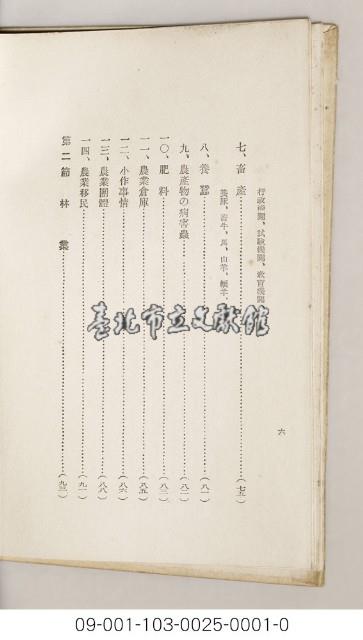 行政機關、試驗機關、教育機關
七、畜産………(七五)
養豚、畜牛、馬、山羊、緬羊、
八、養蠶………(八一)
九、農產物の病害蟲………(八二)
一〇、肥料………(八三)
一一、農業倉庫………(八五)
一二、小作事情………(八六)
一三、農業團體………(八八)
一四、農業移民………(九一)
第二節 林業………(九三)
六
臺北市立文獻館
09-001-103-0025-0001-0